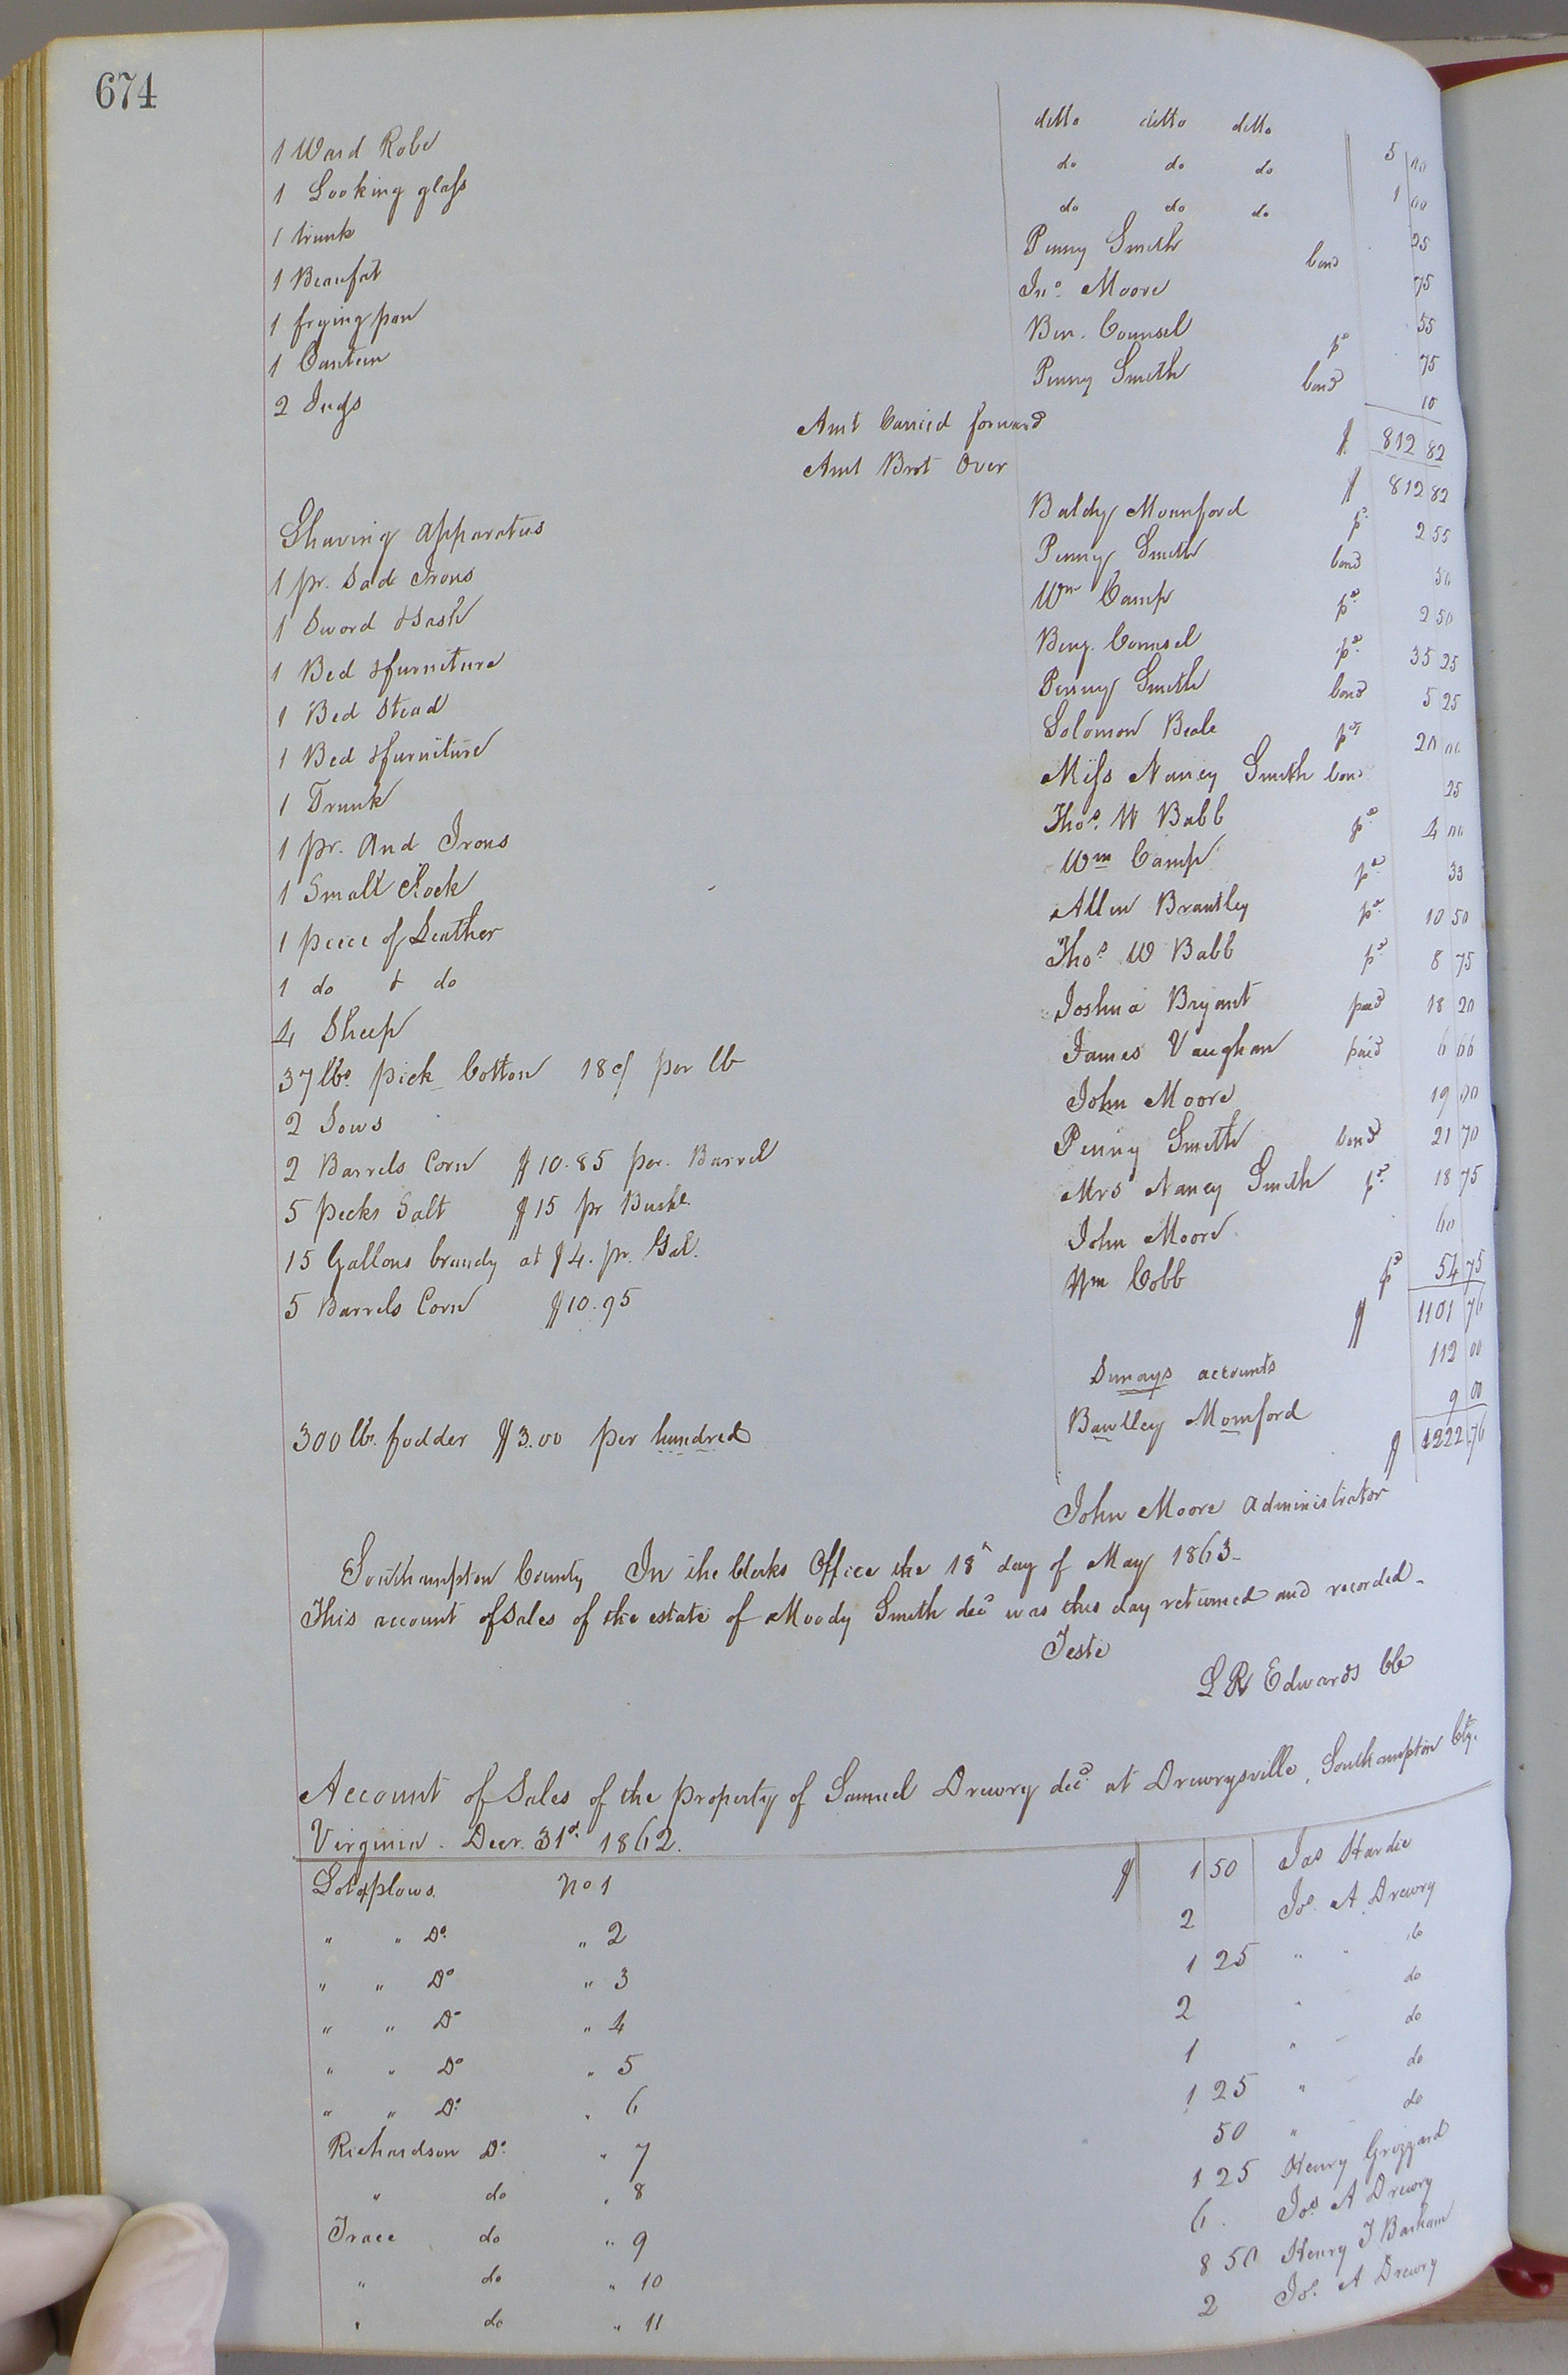 674
1 Ward Robe ditto ditto ditto 5 00
1 Looking glass do do do 1 00
1 trunk do do do 25
1 Beaufat Penny Smith bond 75
1 frying pan Jno. Moore 55
1 Canteen Ben. Counsel pd 75
2 Jugs Penny Smith bond 10
Amt Carried forward $ 812 82
Amt Brot Over $ 812 82
Shaving apparatus Baldy Mounford pd 2 55
1 pr. Sad Irons Penny Smith bond 50
1 Sword & Sash Wm Camp pd 2 50
1 Bed & furniture Benj. Counsel pd 35 25
1 Bed Stead Penny Smith bond 5 25
1 Bed & furniture Solomon Beale pd 20 00
1 Trunk Miss Nancy Smith bond 25
1 pr. And Irons Thos. W Babb pd 4 00
1 Small Clock Wm Camp pd 33
1 piece of Leather Allen Brantley pd 10 50
1 do & do Thos. W Babb pd 8 75
4 Sheep Joshua Bryant paid 18 20
37 lbs. pick Cotton 18 c/ per lb James Vaughan paid 6 66
2 Sows John Moore 19 00
2 Barrels Corn $10.85 per. Barrel Penny Smith bond 21 70
5 pecks Salt $15 pr Bushl. Mrs Nancy Smith pd 18 75
15 Gallons brandy at $4. pr. Gal. John Moore 60
5 Barrels Corn $10.95 Wm Cobb pd 54 75
$ 1101 76
Sunays accounts 112 00
300 lb. fodder $3.00 per hundred Bawlley Momford 9 00
$ 1222.76
John Moore administrator
Southampton County In the Clerks Office the 18th day of May 1863-
This account of Sales of the estate of Moody Smith decd was this day returned and recorded-
Teste
L R Edwards CC
Account of Sales of the property of Samuel Drewry decd. at Drewrysville, Southampton Cty.
Virginia. Decr. 31st. 1862.
Lot of plows. No 1 $ 1 50 Jas Hardie
" " Do. " 2 2 Jos. A. Drewry
" " Do " 3 1 25 " " do
" " Do " 4 2 " do
" " Do " 5 1 " do
" " Do. " 6 1 25 " do
Richardson Do. " 7 50 " do
" do " 8 1 25 Henry Grizzard
Trace do " 9 6. Jos A Drewry
" do " 10 8 50 Henry T Barham
" do " 11 2 Jos. A Drewry